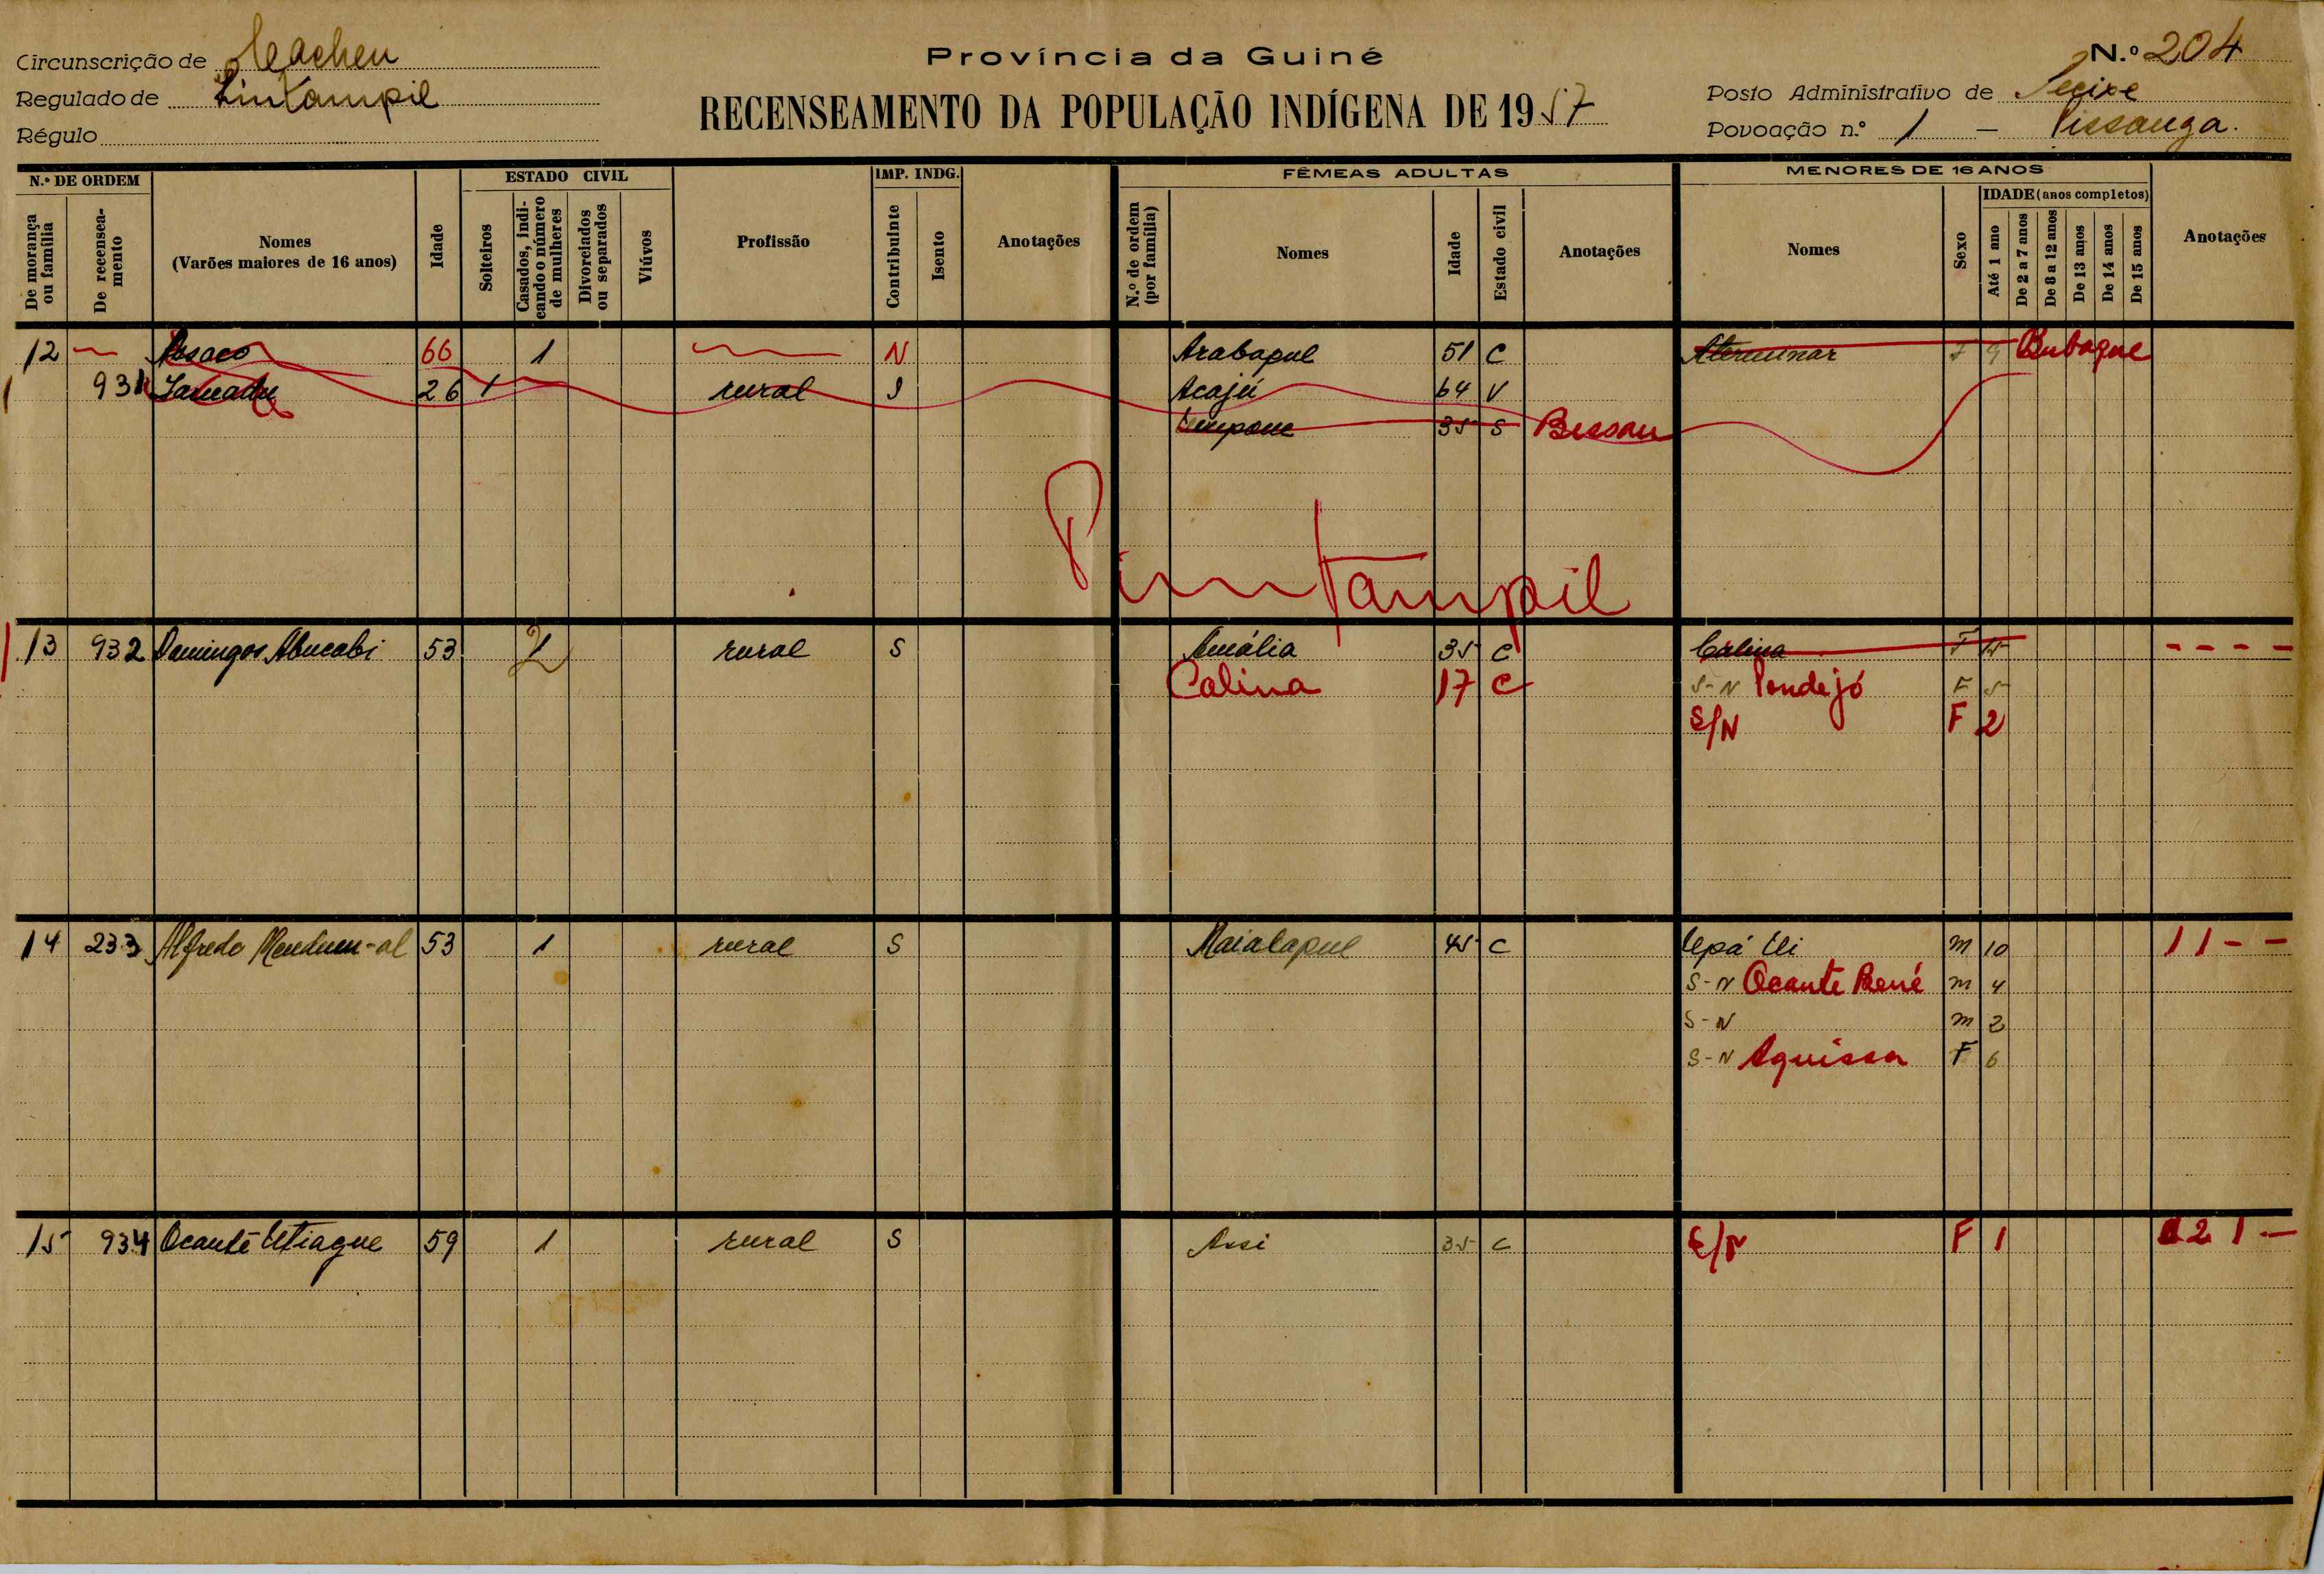 Província da Guiné
RECENSEAMENTO DA POPULAÇÃO INDÍGENA DE 1957
Circunscrição de Cacheu
Regulado de Pintampil
Régulo
N.º 204
Posto Administrativo de
Povoação n.º 1 -
N.º DE ORDEM
De morança ou família
De recenseamento
Nomes
(Varões maiores de 16 anos)
Idade
ESTADO CIVIL
Solteiros
Casados, indicando o número de mulheres
Divorciados ou separados
Viúvos
Profissão
IMP. INDG.
Contribuinte
Isento
Anotações
FÊMEAS ADULTAS
N.º de ordem (por família)
Nomes
Idade
Estado civil
Anotações
MENORES DE 16 ANOS
Nomes
Sexo
IDADE (anos completos)
Até 1 ano
De 2 a 7 anos
De 8 a 12 anos
De 13 anos
De 14 anos
De 15 anos
Anotações
12 66 1 N Arabapul 51 C Aterminar F 9 Bubaque
931 26 1 rural Acajú 64 V
35 S Bissau
Pintampil
13 932 Domingos Abucabi 53 2 rural S Amália 35 C Calina F 15 - - - -
Calina 17 C S-N Pondejó F 5
S/N F 2
14 233 Alfredo 53 1 rural S 45 C M 10 1 1 - -
S-N Ocante René M 4
S-N M 2
S-N Aquissa F 6
15 934 Ocante 59 1 rural S Assi 35 C S/N F 1 2 1 -